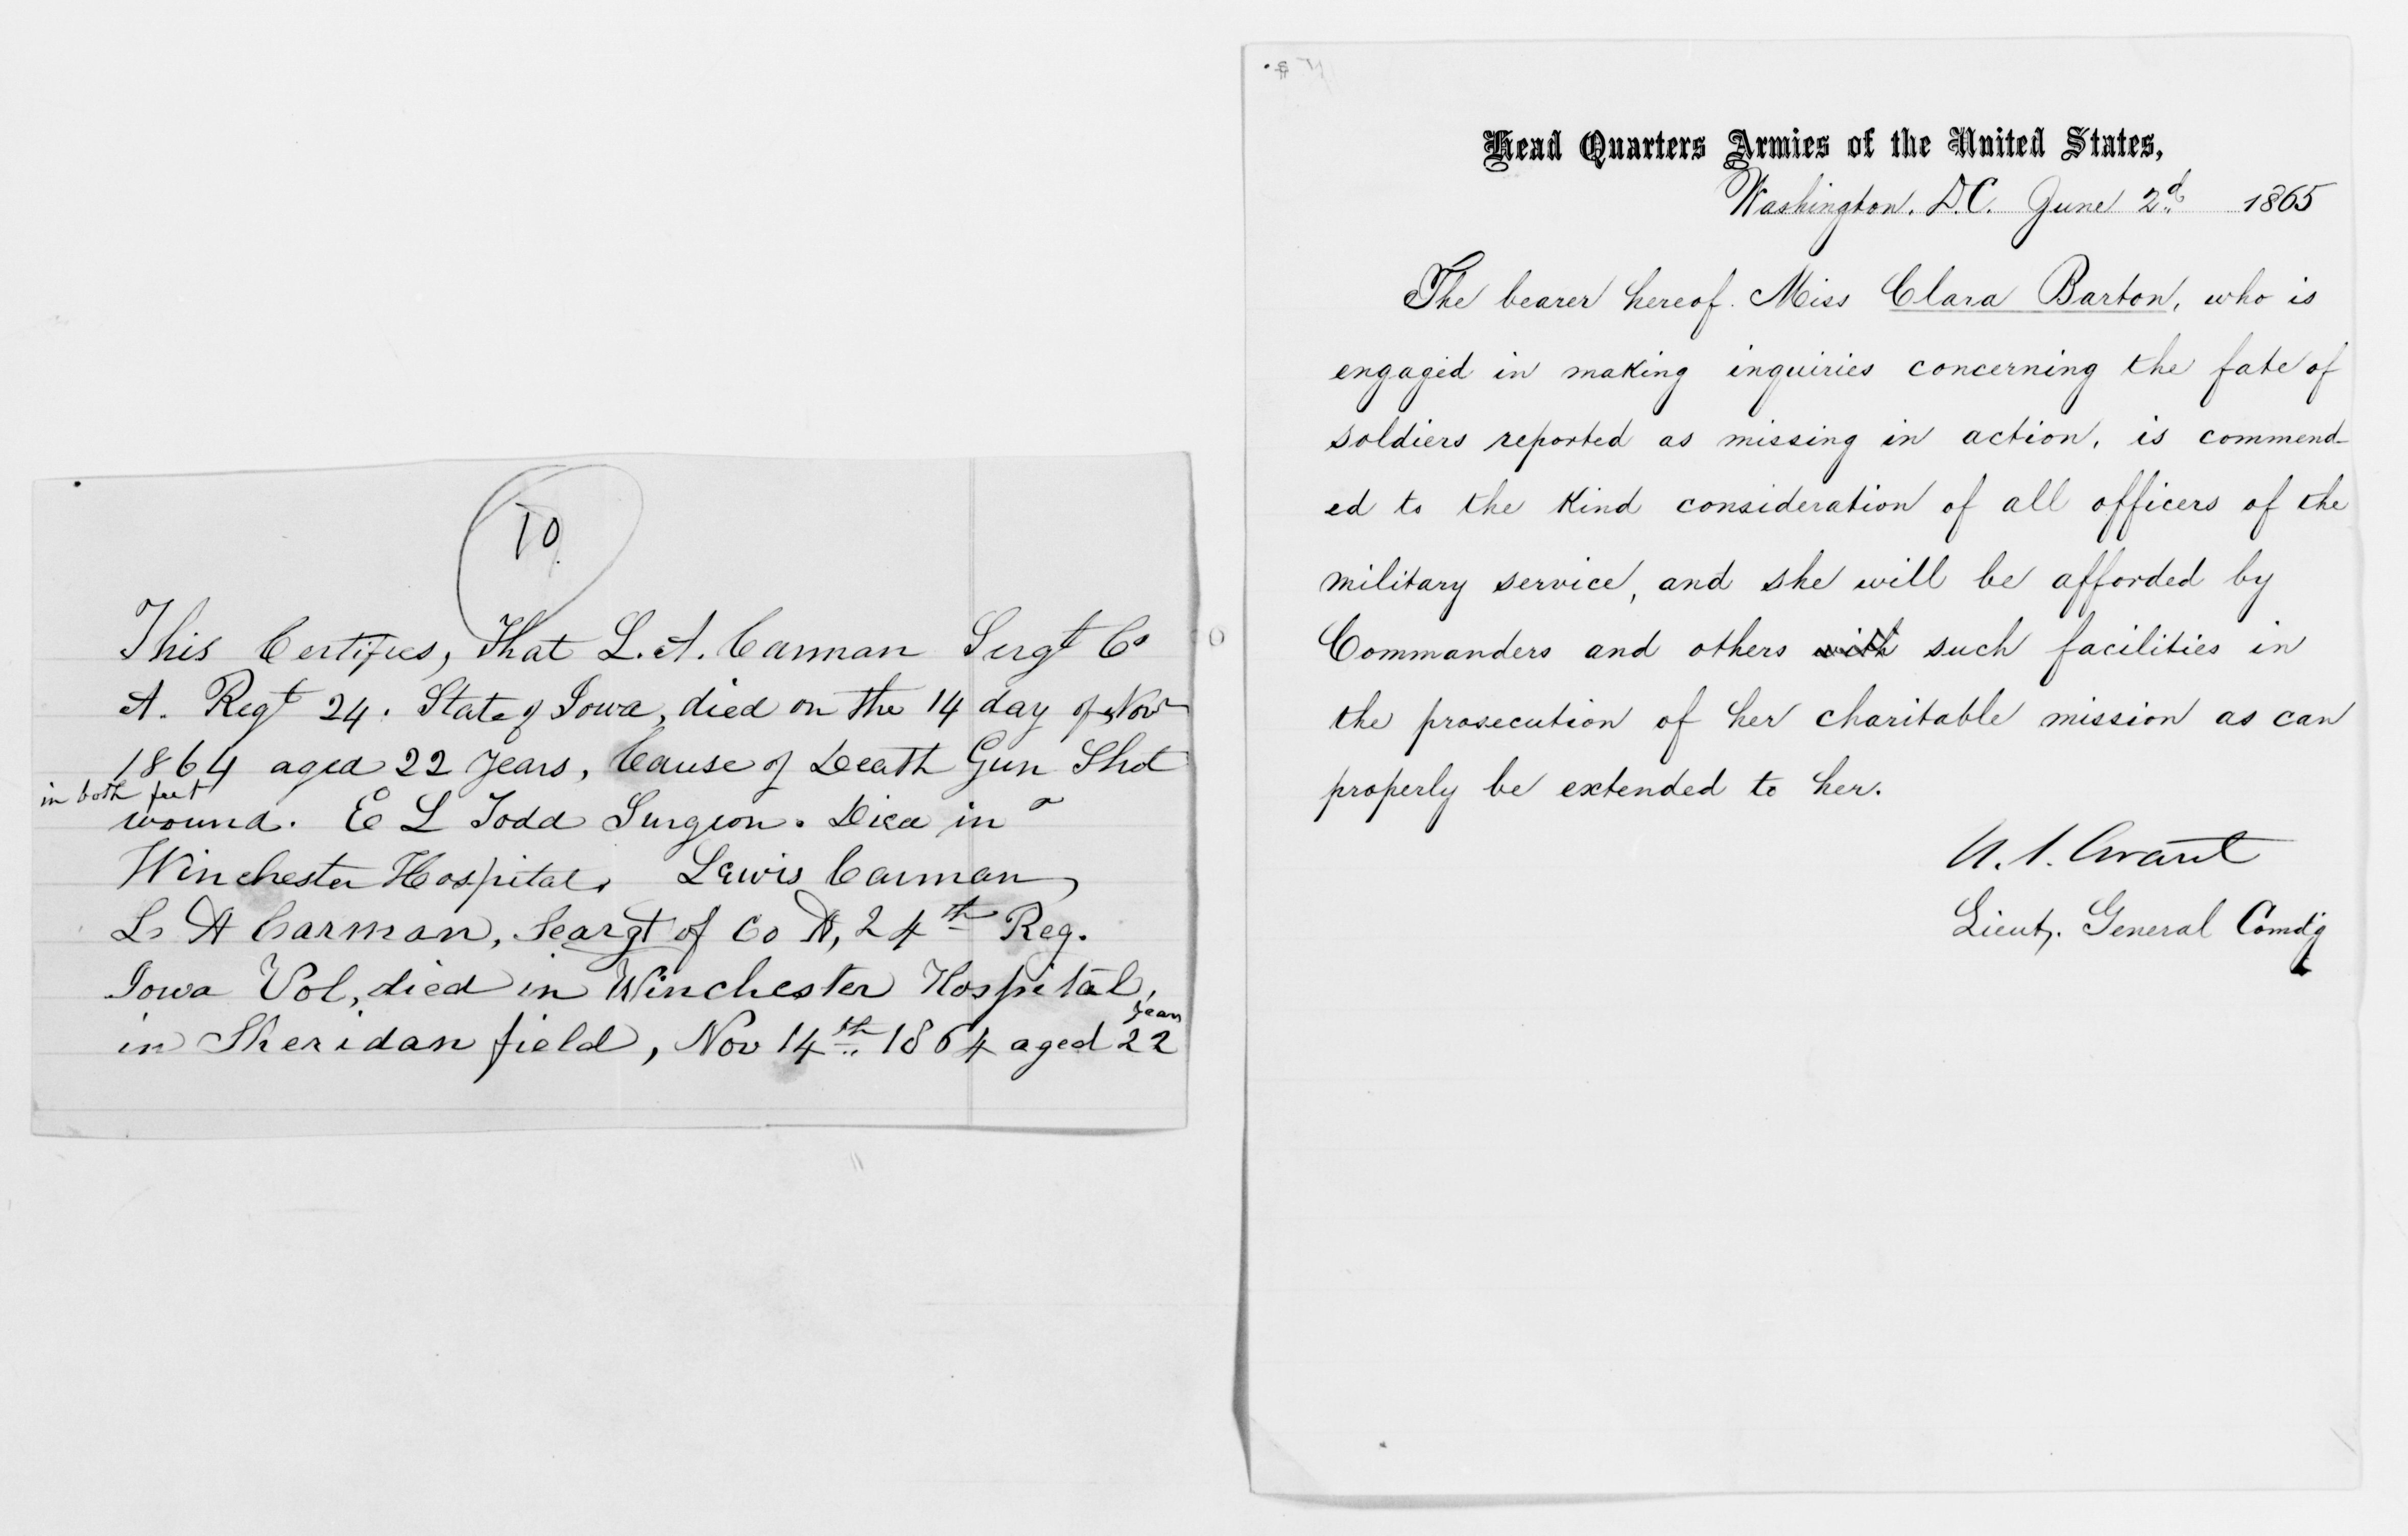 10
This Certifies, That L. A. Carman Sergt Co
A. Regt 24. State of Iowa, died on the 14 day of Nov
1864 aged 22 Years, Cause of Death Gun Shot
in both feet
wound. E L Todd Surgeon. Died in
Winchester Hospital. Lewis Carman,
L A Carman, Seargt of Co A, 24th Reg.
Iowa Vol, died in Winchester Hospital,
years
in Sheridan field, Nov 14th 1864 aged 22
Head Quarters Armies of the United States,
Washington. D.C. June 2d 1865
The bearer hereof. Miss Clara Barton, who is
engaged in making inquiries concerning the fate of
soldiers reported as missing in action, is commend-
ed to the kind consideration of all officers of the
military service, and she will be afforded by
Commanders and others with such facilities in
the prosecution of her charitable mission as can
properly be extended to her.
U. S. Grant
Lieut. General Comd'g